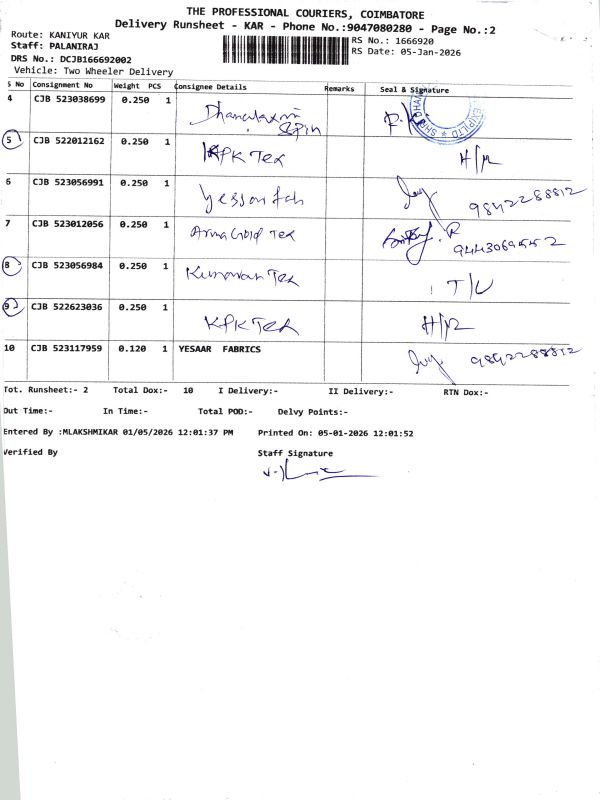 THE PROFESSIONAL COURIERS, COIMBATORE
Delivery Runsheet - KAR - Phone No.:9047080280 - Page No.:2
Route: KANIYUR KAR
Staff: PALANIRAJ
DRS No.: DCJB166692002
Vehicle: Two Wheeler Delivery
RS No.: 1666920
RS Date: 05-Jan-2026
S No Consignment No Weight PCS Consignee Details Remarks Seal & Signature
4 CJB 523038699 0.250 1 Dhanalaxmi Spin
5 CJB 522012162 0.250 1 KPK Tex H/R
6 CJB 523056991 0.250 1 9842288812
7 CJB 523012056 0.250 1 Tex R 9443069552
8 CJB 523056984 0.250 1 Tex T/U
9 CJB 522623036 0.250 1 KPK Tex H/R
10 CJB 523117959 0.120 1 YESAAR FABRICS 9842288812
Tot. Runsheet:- 2 Total Dox:- 10 I Delivery:- II Delivery:- RTN Dox:-
Out Time:- In Time:- Total POD:- Delvy Points:-
Entered By :MLAKSHMIKAR 01/05/2026 12:01:37 PM Printed On: 05-01-2026 12:01:52
Verified By Staff Signature